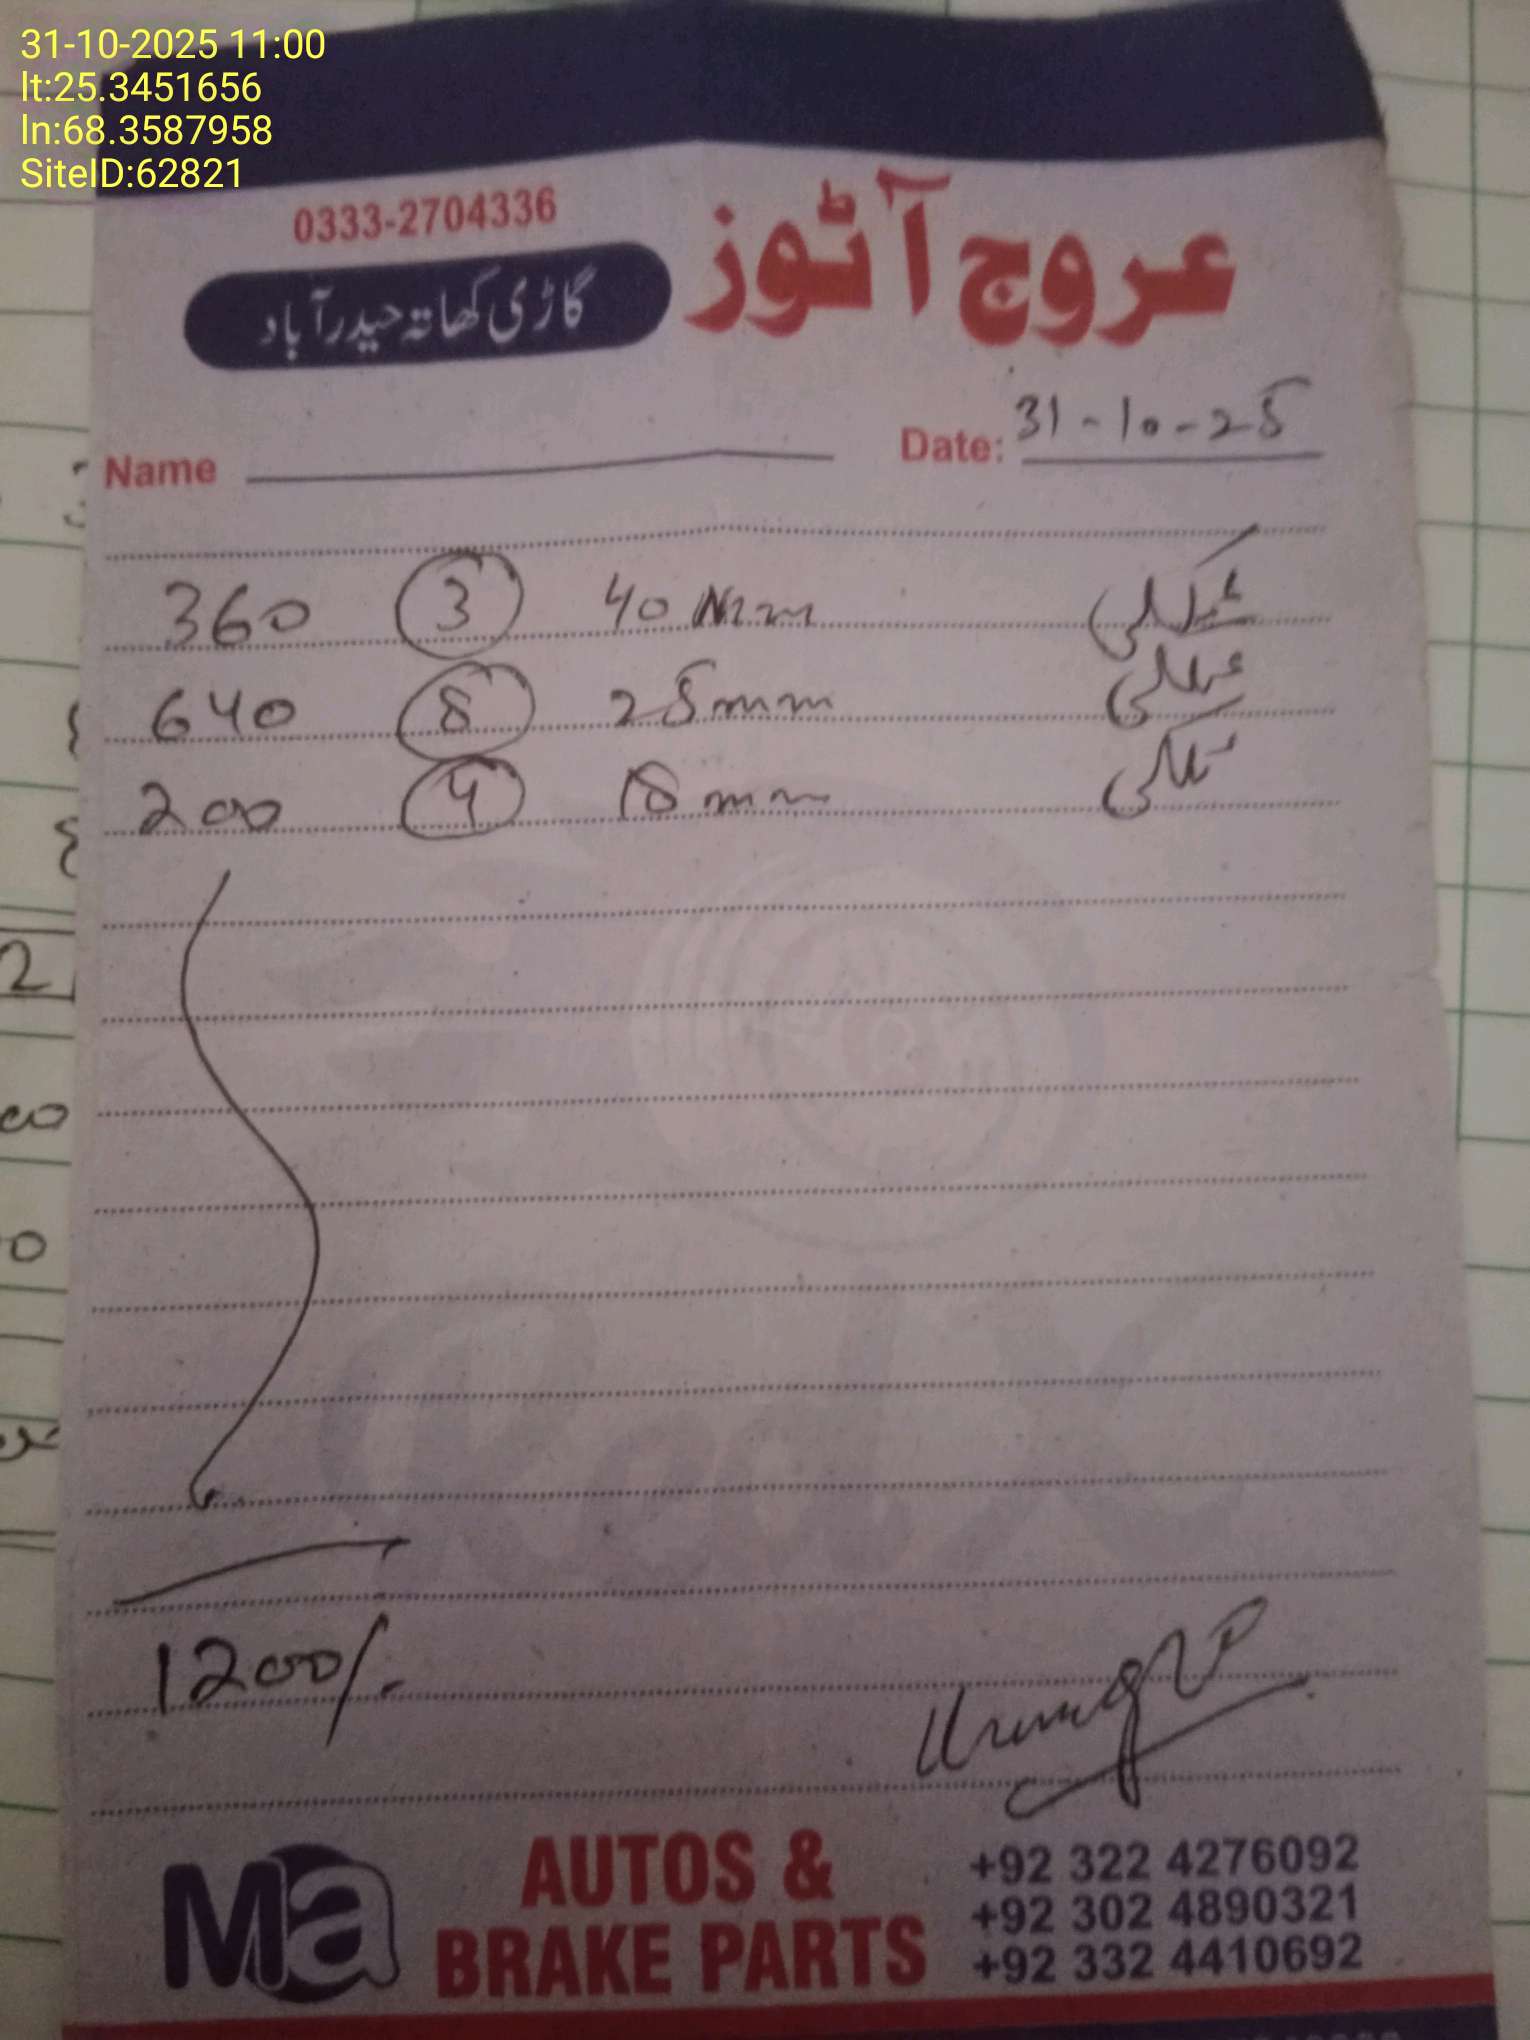 31-10-2025 11:00
lt:25.3451656
ln:68.3587958
SiteID:62821
0333-2704336
عروج آٹوز
گاڑی کھاتہ حیدرآباد
Name
Date: 31-10-25
360 3 40 mm
640 8 25mm
200 4 18mm
2
1200/-
Ma
AUTOS &
BRAKE PARTS
+92 322 4276092
+92 302 4890321
+92 332 4410692